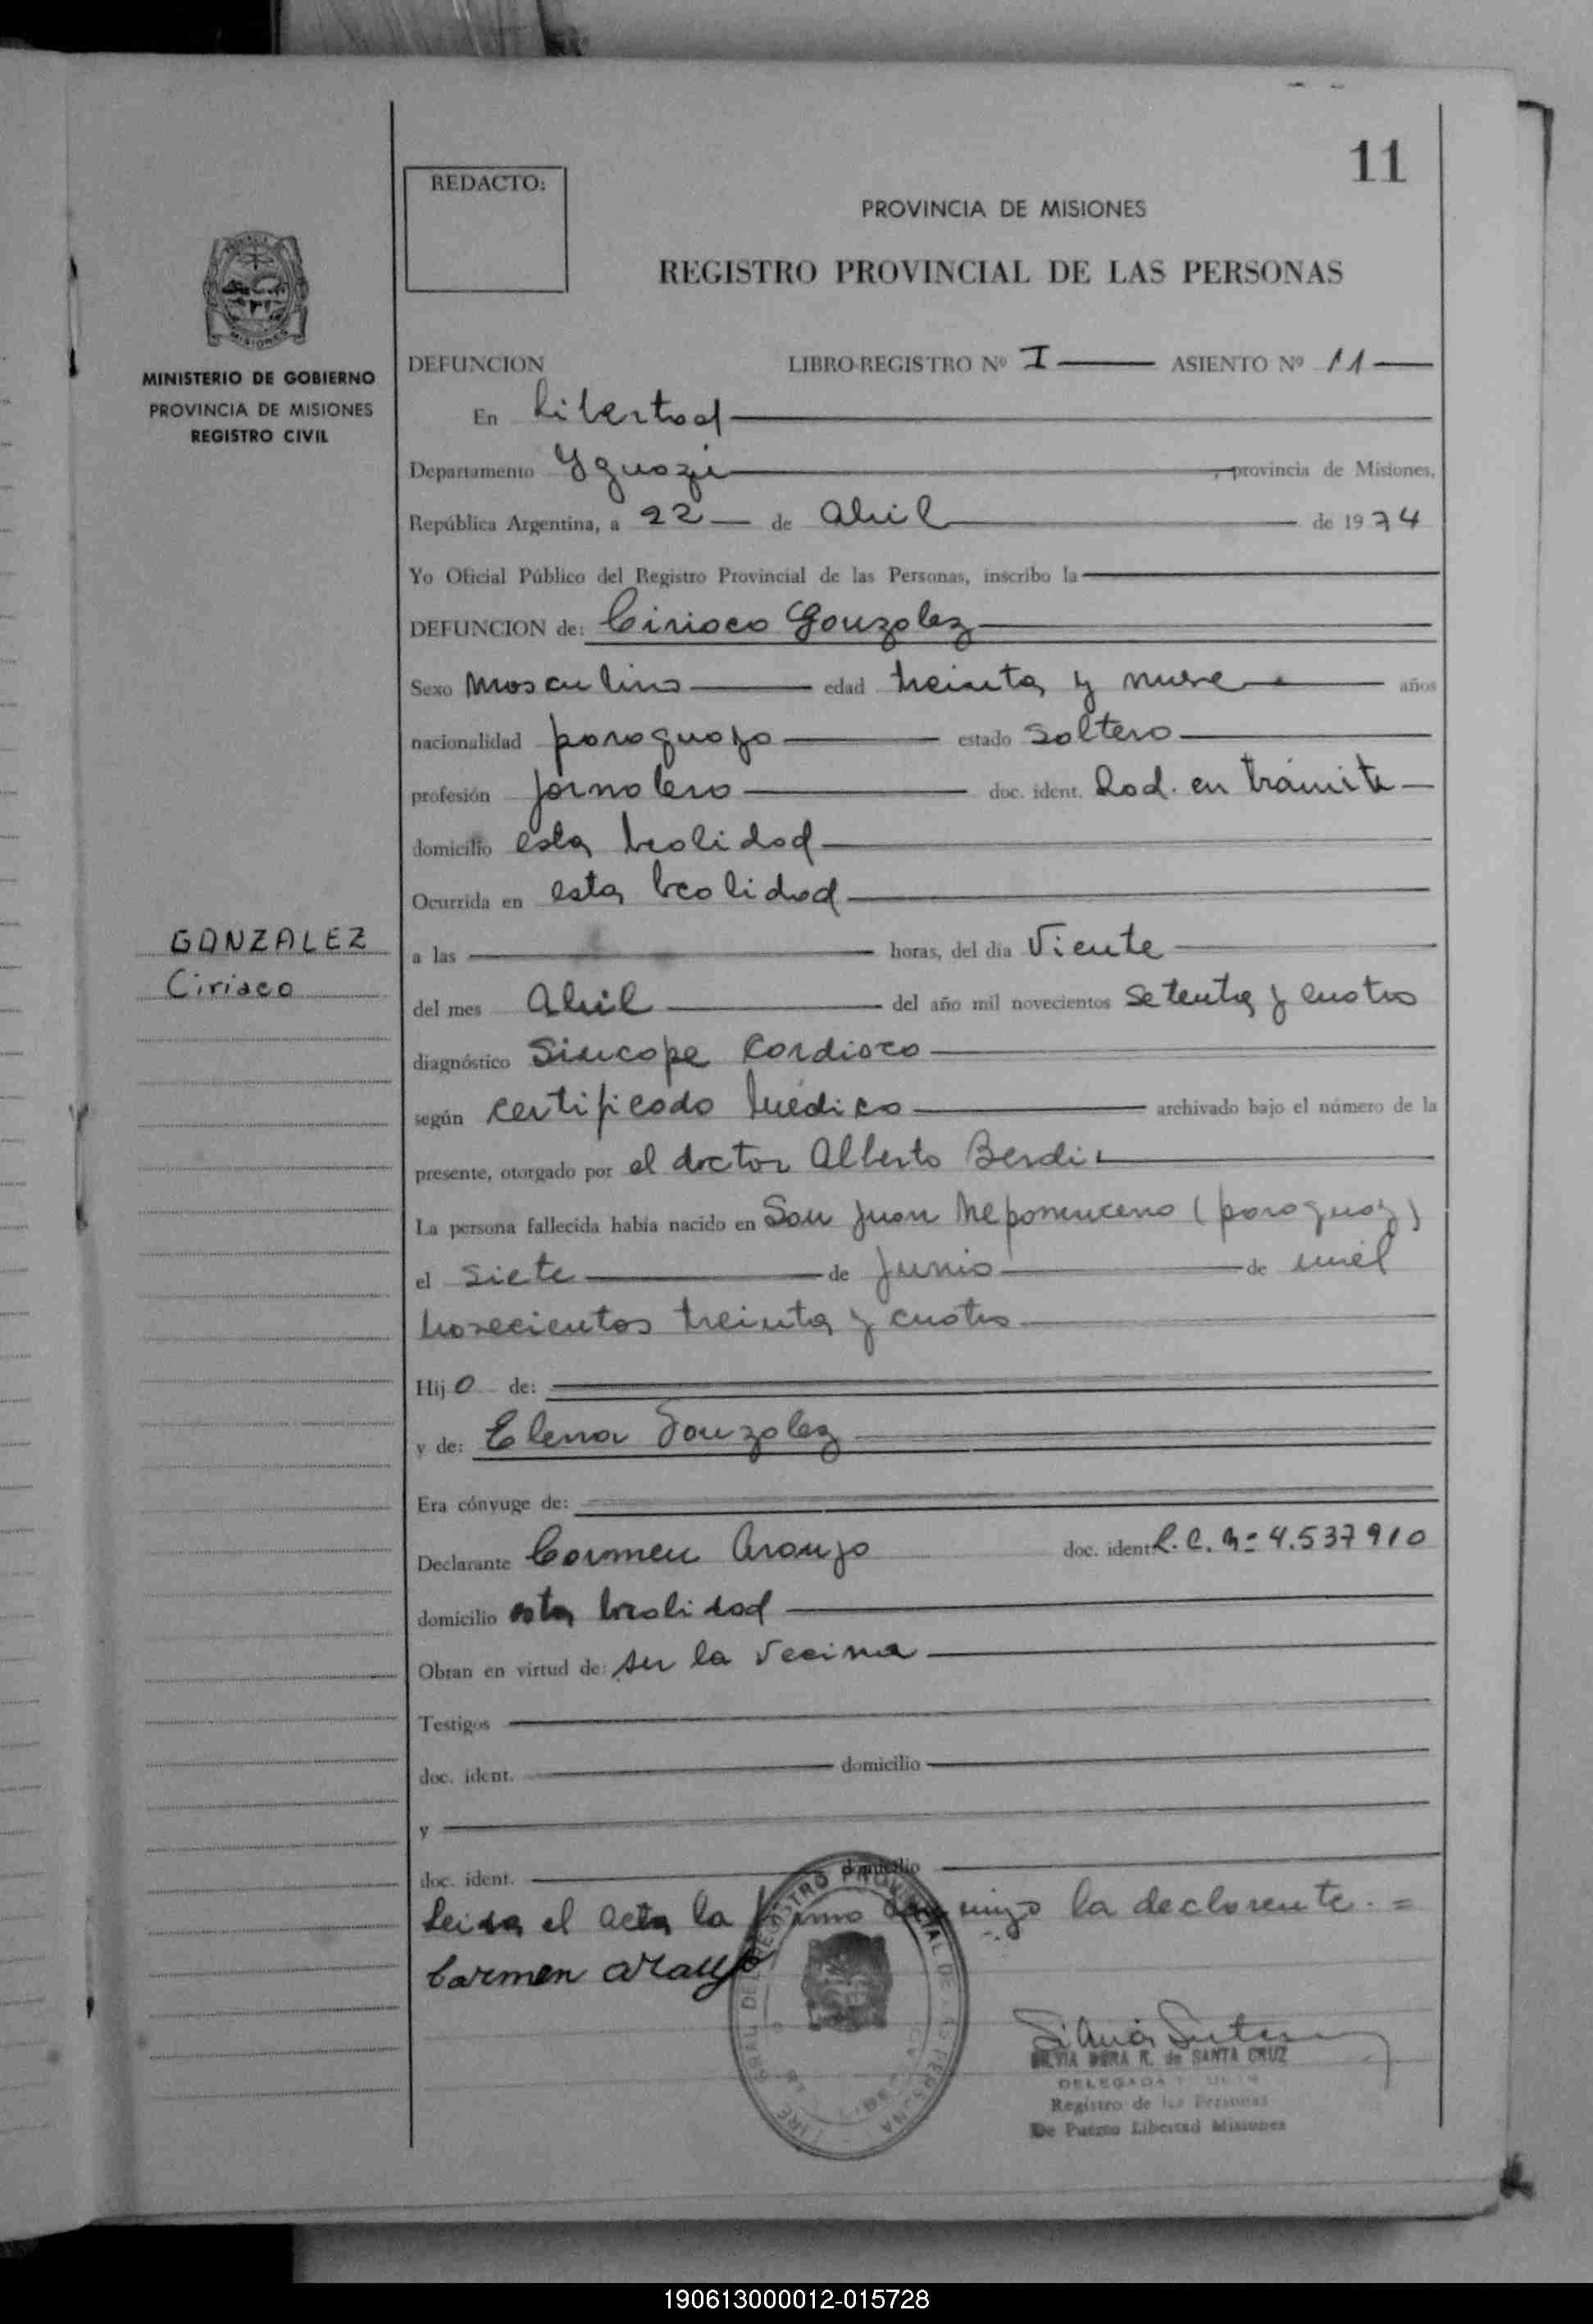 11
REDACTO:
PROVINCIA DE MISIONES
REGISTRO PROVINCIAL DE LAS PERSONAS
MISIONES
MINISTERIO DE GOBIERNO
PROVINCIA DE MISIONES
REGISTRO CIVIL
DEFUNCION LIBRO-REGISTRO Nº I ASIENTO Nº 11
En Libertad
Departamento Yguazú, provincia de Misiones,
República Argentina, a 22 de Abril de 1974
Yo Oficial Público del Registro Provincial de las Personas, inscribo la
DEFUNCION de: Ciriaco Gonzalez
Sexo Masculino edad treinta y nueve años
nacionalidad paraguayo estado Soltero
profesión jornalero doc. ident. Rad. en trámite
domicilio esta localidad
Ocurrida en esta localidad
GONZALEZ
Ciriaco
a las horas, del día Viente
del mes Abril del año mil novecientos Setenta y cuatro
diagnóstico Síncope Cardiaco
según certificado médico archivado bajo el número de la
presente, otorgado por el doctor Alberto Berdi
La persona fallecida había nacido en San Juan Nepomuceno (paraguay)
el siete de Junio de mil
novecientos treinta y cuatro
Hijo de:
y de: Elena Gonzalez
Era cónyuge de:
Declarante Carmen Araujo doc. ident. L.C. Nº 4.537910
domicilio esta localidad
Obran en virtud de: ser la vecina
Testigos
doc. ident. domicilio
y
doc. ident. domicilio
Leida el acta la firma conmigo la declarente. =
Carmen Araujo
SILVIA DORA R. de SANTA CRUZ
DELEGADA
Registro de las Personas
De Puerto Libertad Misiones
190613000012-015728